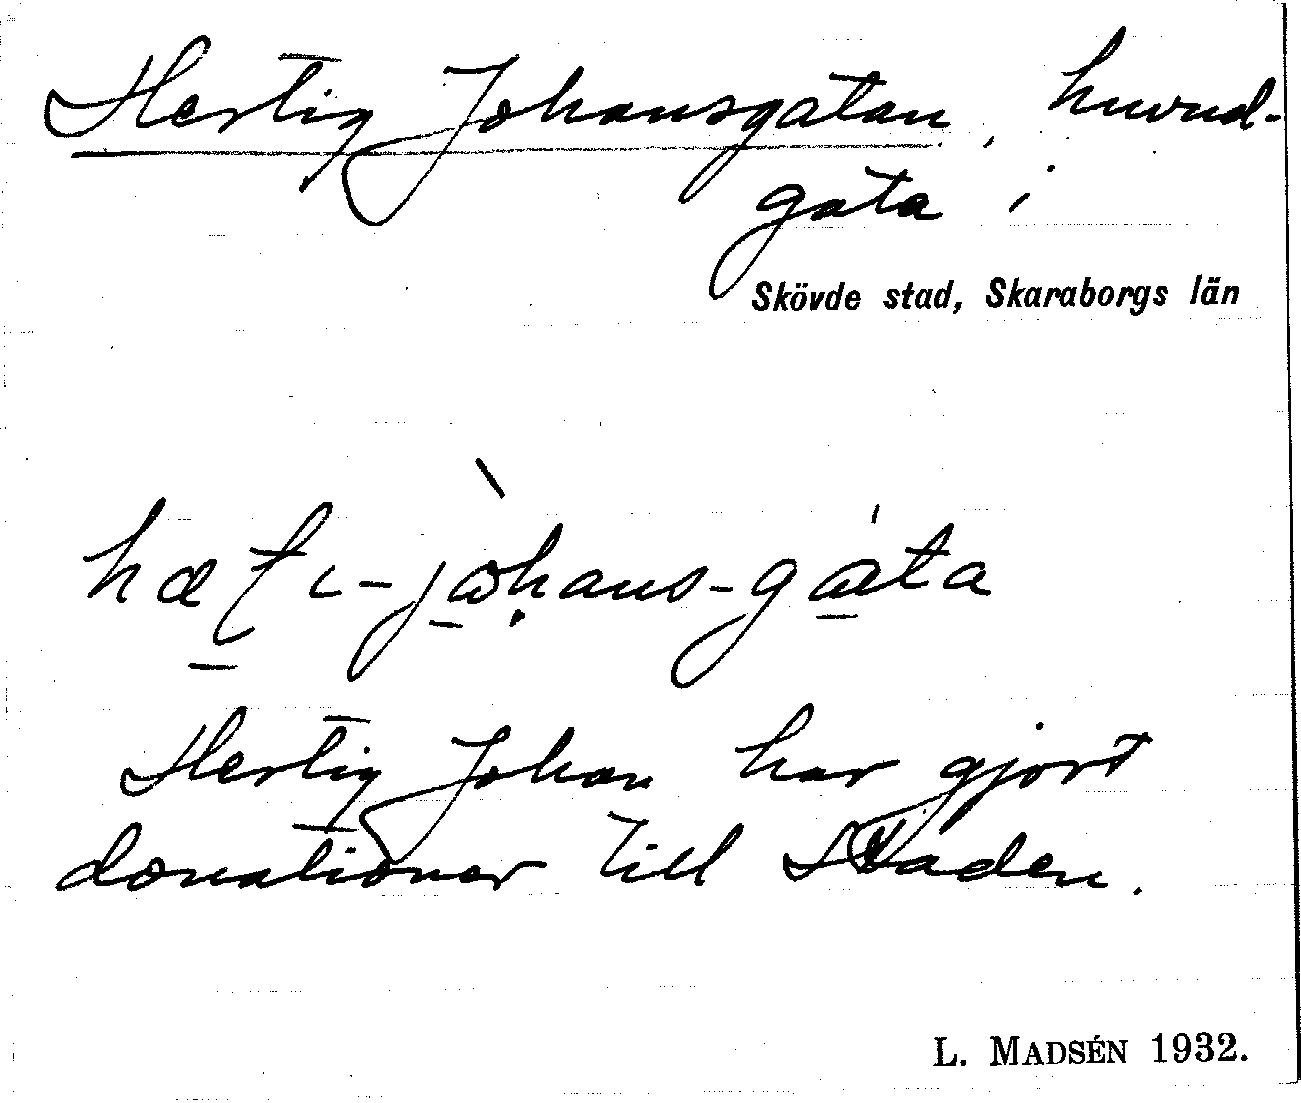 Hertig Johansgatan, huvud-
gata i
Skövde stad, Skaraborgs län
Hertig Johan har gjort
donationer till staden.
L. MADSÉN 1932.